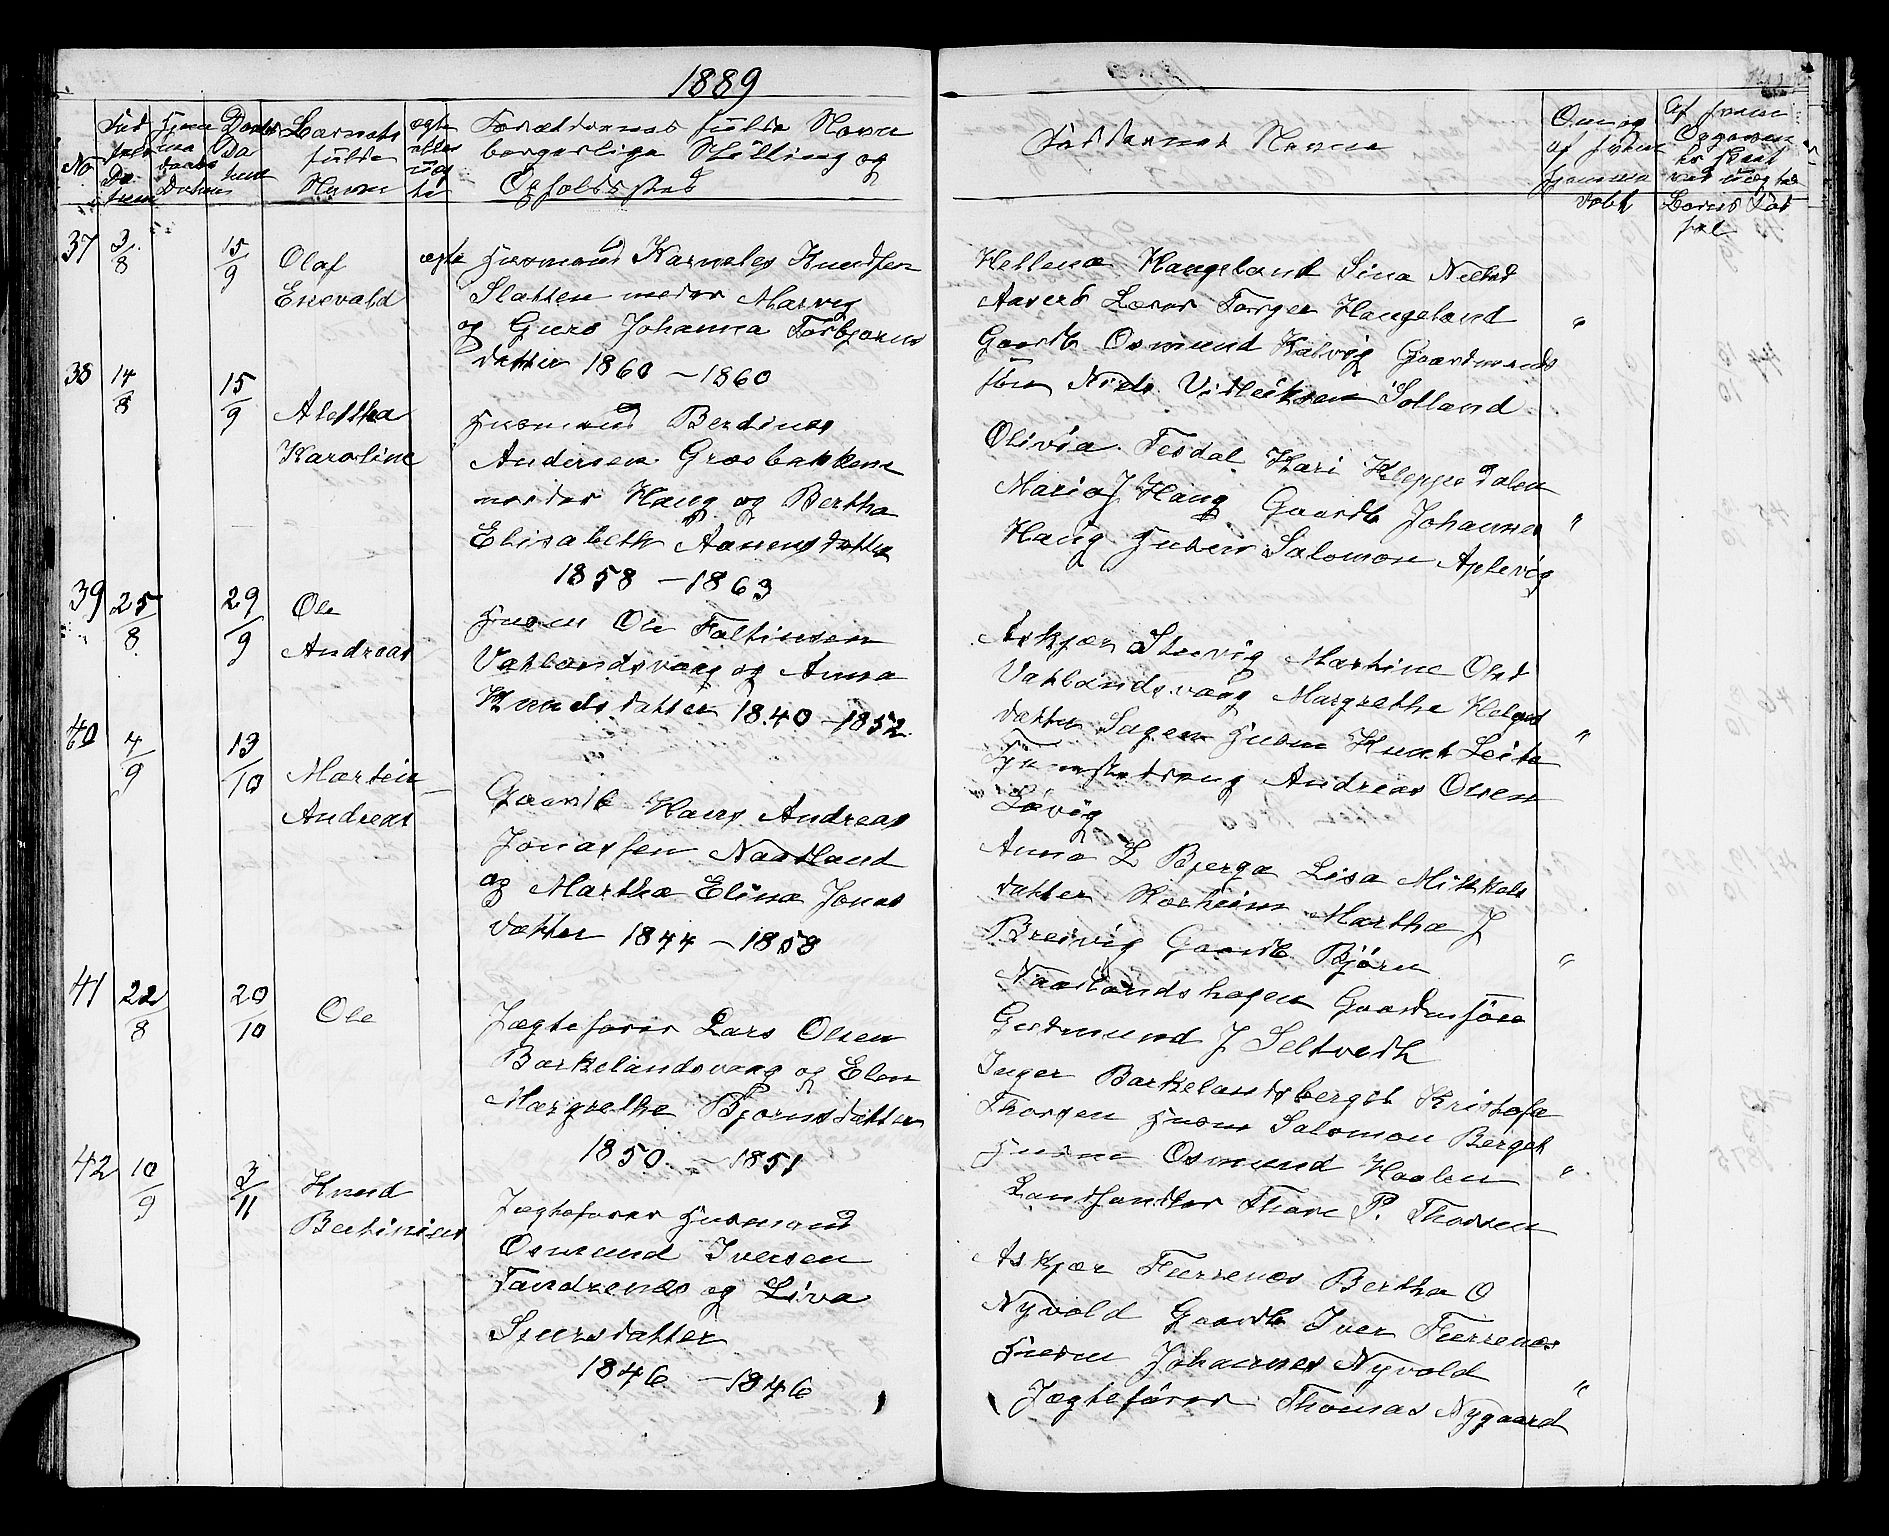 1889
No
Barnets
fulde
Navn
ægte
eller
uæg
te
Forældrenes fulde Navn
borgerlige Stilling og
Opholdssted
Faddernes Navne
Om og
af hvem
hjemme
døbt
37 3/8 15/9 Olaf
Enevald
ægte
Husmand Karnelus Knudsen
Slatten nedre Marvig
og Guro Johanna Torbjørns
datter 1860 – 1860
Hellena Haugeland Sina Nilsd
Lærer Torger Haugeland
Gaardb Osmund Kalvig Gaardmands
søn Nils Vitleiksen Solland
"
38 14/8 15/9 Alettha
Karoline
Husmand Berdines
Andersen Græsbakken
nedre Haug og Bertha
Elisabeth Aanensdatter
1858 – 1863
Olivia Tesdal Kari Kleppedalen
Maria J Haug Gaardb Johannes
Haug Husm Salomon Aplevig
"
39 25/8 29/9 Ole
Andreas
Husm Ole Faltinsen
Vatlandsvaag og Anna
Knudsdatter 1840 – 1852
Askjær Stuvig Martine Olsd
Vatlandsvaag Margrethe Helges
datter Sagen Husm Knut Leite
Andreas Olsen
Løvig
"
40 4/9 13/10 Martin
Andreas
Gaardb Hans Andreas
Jonassen Naadland
og Martha Elina Jonas
datter 1844 – 1858
Anna L Bjerga Lisa Mikkels
datter Martha J
Breivig Gaardb Bjørn
Naadlandshagen Gaardmsøn
Gudmund J Seltvedt
"
41 22/8 20/10 Ole
Jægtefører Lars Olsen
Barkelandsvaag og Elen
Margrethe Bjornsdatter
1850 – 1851
Inger Barkelandsberget Kristofa
Thorsen Husm Salomon Berget
Husm Osmund Haalen
Landhandler Thore P. Thorsen
"
42 10/9 3/11 Knud
Bertinius
Jægtefører Husmand
Osmund Iversen
Tandrenes og Liva
Sjursdatter
1846 – 1846
Askjær Furrenes Bertha O
Nyvold Gaardb Iver Furrenes
Husm Johannes Nyvold
Jægtefører Thomas Nygaard
"